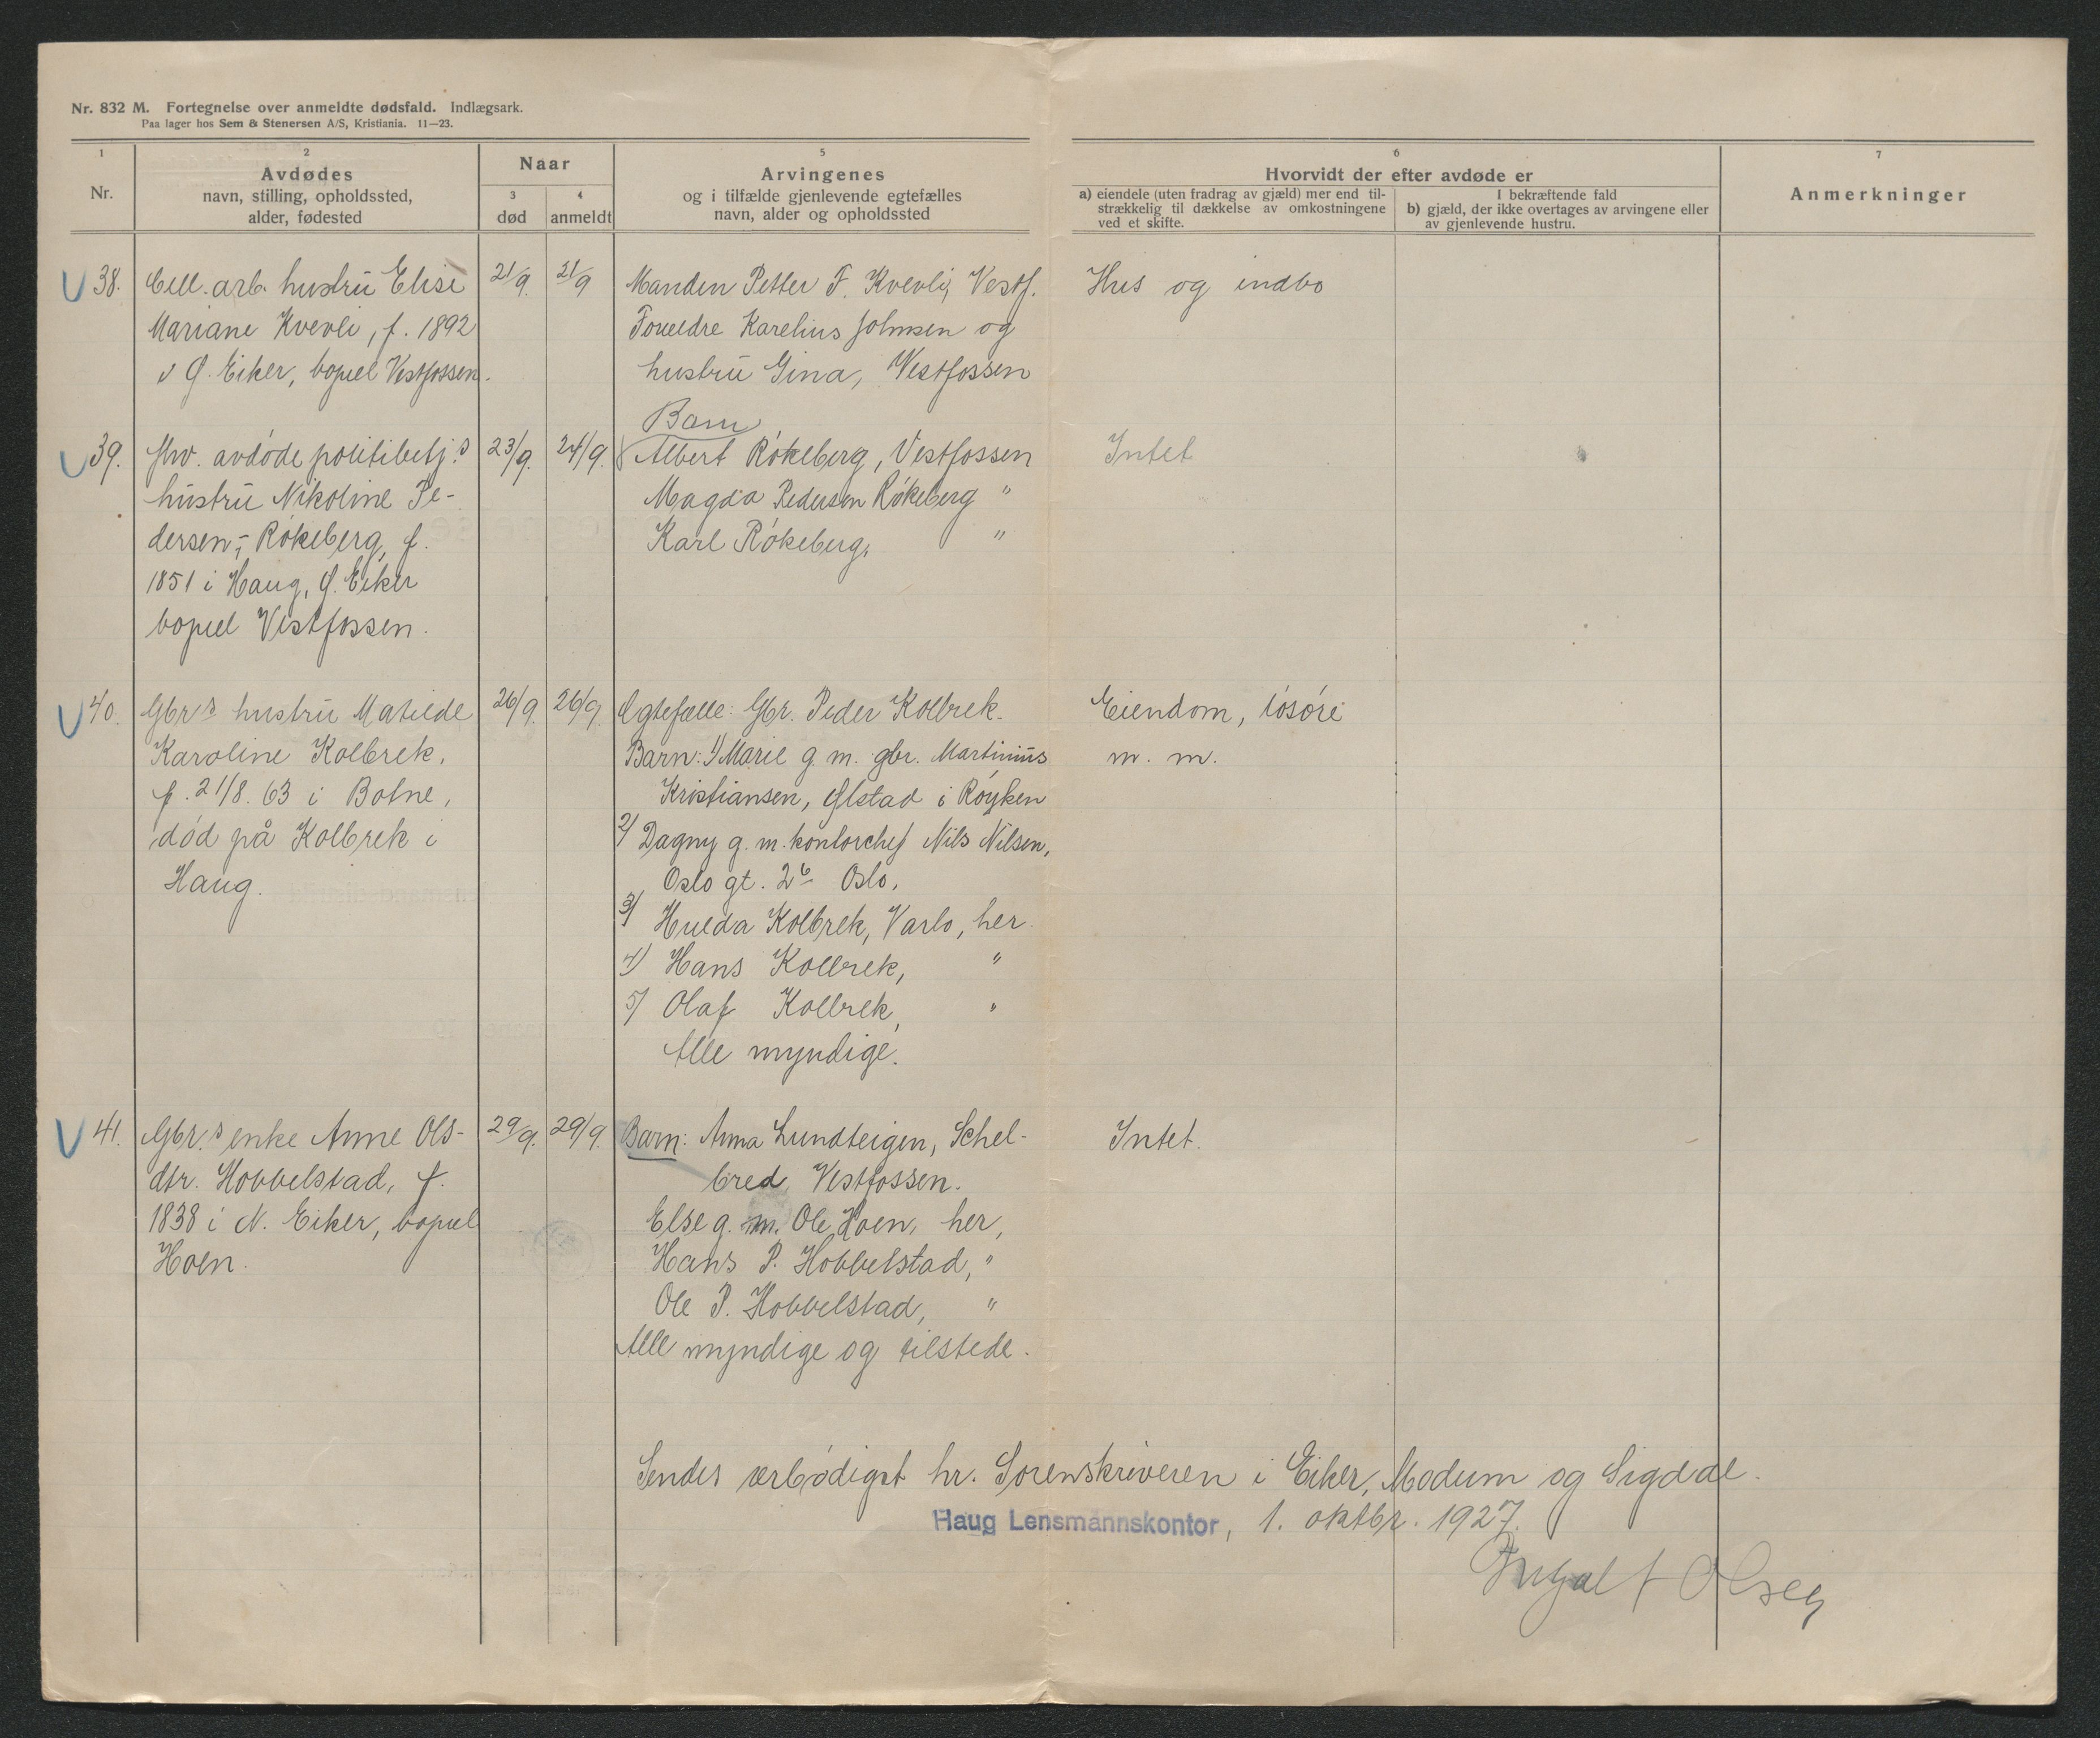 Nr. 832 M. Fortegnelse over anmeldte dødsfald. Indlægsark.
Paa lager hos Sem & Stenersen A/S, Kristiania. 11—23.
1
Nr.
2
Avdødes
navn, stilling, opholdssted,
alder, fødested
Naar
3
død
4
anmeldt
5
Arvingenes
og i tilfælde gjenlevende egtefælles
navn, alder og opholdssted
6
Hvorvidt der efter avdøde er
a) eiendele (uten fradrag av gjæld) mer end til-
strækkelig til dækkelse av omkostningene
ved et skifte.
I bekræftende fald
b) gjæld, der ikke overtages av arvingene eller
av gjenlevende hustru.
7
Anmerkninger
38.
Cell. arb. hustru Elise
Mariane Kvevli, f. 1892
i Ø. Eiker, bopæl Vestfossen.
21/9.
21/9
Manden Petter F. Kvevli, Vestf.
Foreldre Karelius Johnsen og
hustru Gina, Vestfossen
Hus og indbo
39.
fhv. avdøde politibetj.s
hustru Nikoline Pe-
dersen-Røkeberg, f.
1851 i Haug, Ø. Eiker
bopæl Vestfossen.
23/9.
24/9.
Barn
Albert Røkeberg, Vestfossen
Magda Pedersen Røkeberg "
Karl Røkeberg, "
Intet
40.
Gbr.s hustru Matilde
Karoline Kolbrek,
f. 21/8. 63 i Botne,
død på Kolbrek i
Haug.
26/9.
26/9.
Egtefælle: Gbr. Peder Kolbrek.
Barn: 1/ Marie g. m. gbr. Martinius
Kristiansen, Ølstad i Røyken
2/ Dagny g. m. kontorchef Nils Nilsen,
Oslo gt. 26 Oslo,
3/ Hulda Kolbrek, Varlo, her.
4/ Hans Kolbrek, "
5/ Olaf Kolbrek, "
Alle myndige.
Eiendom, løsøre
m. m.
41.
Gbr.s enke Anne Ols-
dtr. Hobbelstad, f.
1838 i N. Eiker, bopæl
Hoen.
29/9.
29/9.
Barn: Anna Lundteigen, Schel-
bred, Vestfossen.
Else g. m. Ole Hoen, her,
Hans P. Hobbelstad, "
Ole P. Hobbelstad, "
Alle myndige og tilstede.
Intet.
Sendes ærbødigst hr. Sorenskriveren i Eiker, Modum og Sigdal.
Haug Lensmannskontor, 1. oktbr. 1927.
Olsen